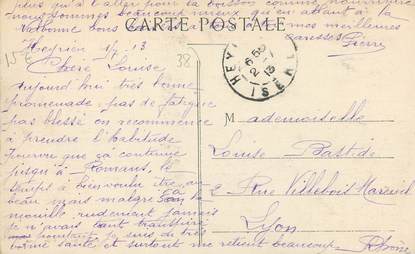 plus qu'à l'aller pour la boisson comme nourriture
nous sommes beaucoup mieux que en allant à la
Valbonne bons baisers à tous mes meilleures
caresses Pierre
CARTE POSTALE
Heyrieu 1/7 13
Chère Louise
Aujourd'hui très bonne
promenade, pas de fatigue
pas blessé on recommence
à prendre l'habitude
Pourvu que ça continue
jusqu'à Romans, le
temps à bien voulu être
beau mais malgré ça
mouille rudement jamais
je n'avais tant transpiré
mais pourtant je suis de très
bonne santé et surtout me retient beaucoup
38
HEYRIEU
6 55
2 -7
13
ISÈRE
Mademoiselle
Louise Bastide
2 Rue Villebois Mareuil
Lyon
Rhône